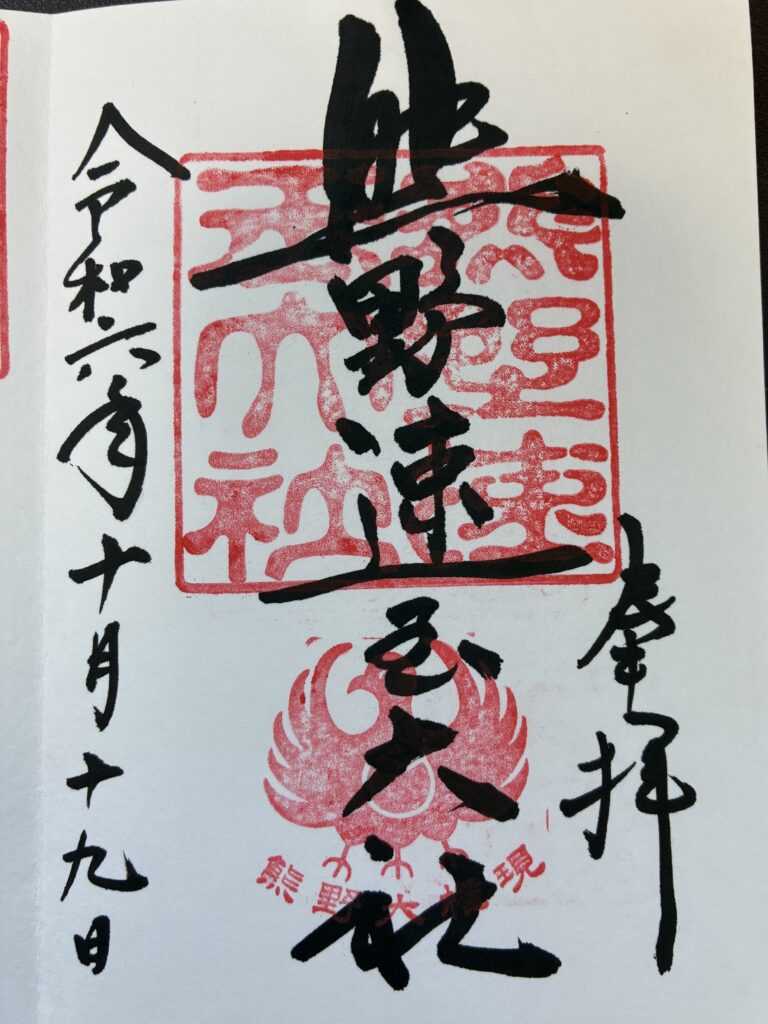 奉拝
熊野速玉大社
熊野速玉大社
熊野大権現
令和六年十月十九日